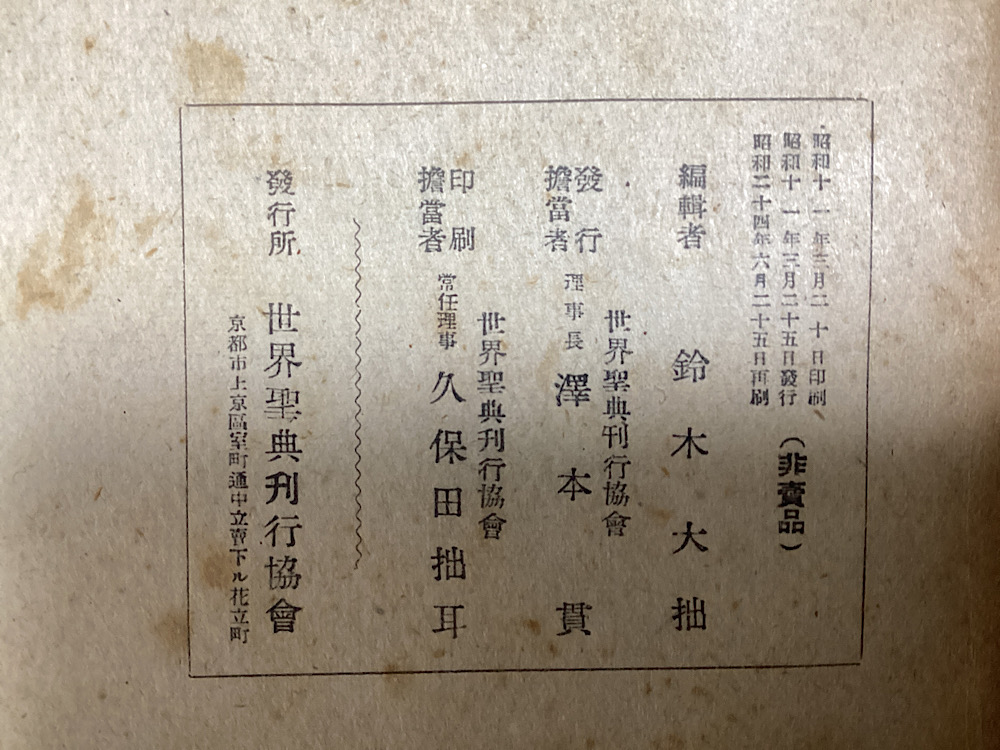 昭和十一年三月二十日印刷
昭和十一年三月二十五日發行
昭和二十四年六月二十五日再刷
（非賣品）
編輯者 鈴木大拙
發行擔當者 世界聖典刊行協會
理事長 澤本貫
印刷擔當者 世界聖典刊行協會
常任理事 久保田拙耳
發行所 世界聖典刊行協會
京都市上京區室町通中立賣下ル花立町